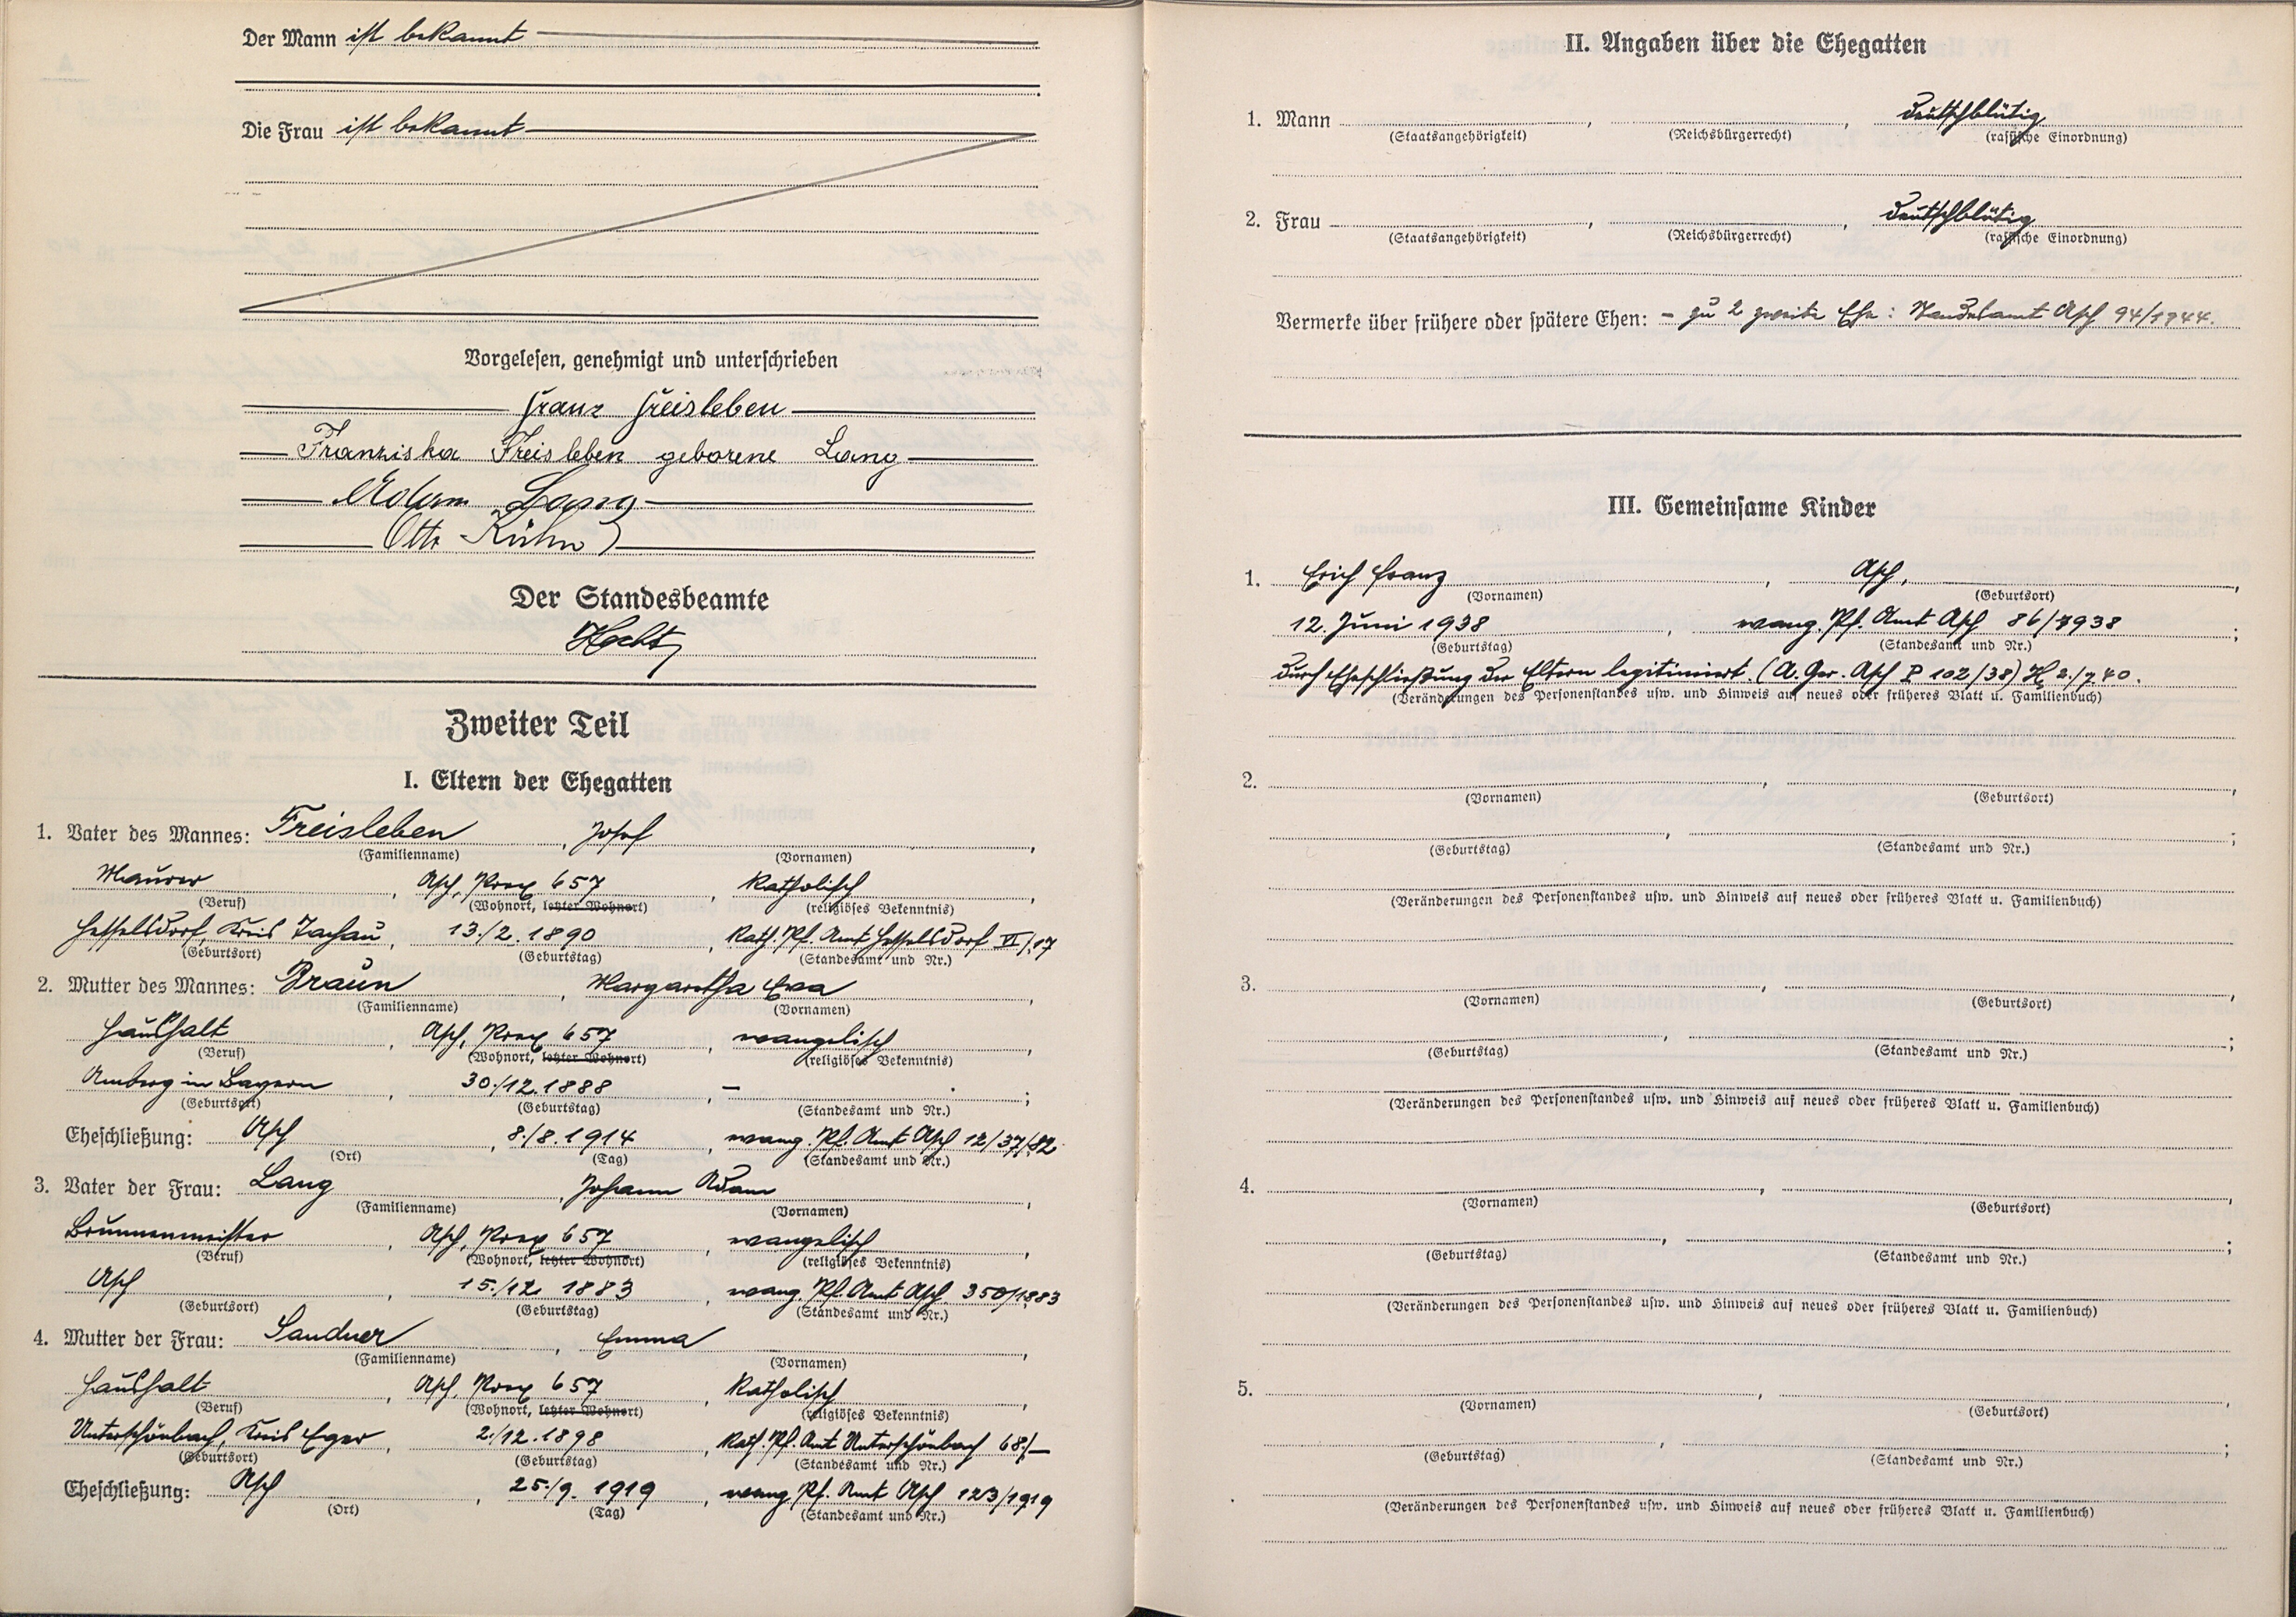 Der Mann ist bekannt
Die Frau ist bekannt
Vorgelesen, genehmigt und unterschrieben
Franz Freisleben
Franziska Freisleben geborene Lang
Adam Lang
Otto Kühn
Der Standesbeamte
Hecht
Zweiter Teil
I. Eltern der Ehegatten
1. Vater des Mannes: Freisleben, Josef,
(Familienname) (Vornamen)
Maurer, Asch, 657, katholisch,
(Beruf) (Wohnort, letzter Wohnort) (religiöses Bekenntnis)
Hesselsdorf, Kreis Tachau, 13./2. 1890, kath. Pf. Amt Hesselsdorf VI/17
(Geburtsort) (Geburtstag) (Standesamt und Nr.)
2. Mutter des Mannes: Braun, Margaretha Eva,
(Familienname) (Vornamen)
Haushalt, Asch, 657, evangelisch,
(Beruf) (Wohnort, letzter Wohnort) (religiöses Bekenntnis)
Amberg in Bayern, 30./12.1888, – ;
(Geburtsort) (Geburtstag) (Standesamt und Nr.)
Eheschließung: Asch, 8./8.1914, evang. Pf. Amt Asch 12/37/82.
(Ort) (Tag) (Standesamt und Nr.)
3. Vater der Frau: Lang, Johann Adam,
(Familienname) (Vornamen)
Brunnenmeister, Asch, 657, evangelisch,
(Beruf) (Wohnort, letzter Wohnort) (religiöses Bekenntnis)
Asch, 15./12. 1883, evang. Pf. Amt Asch 350/1883
(Geburtsort) (Geburtstag) (Standesamt und Nr.)
4. Mutter der Frau: Sandner, Emma,
(Familienname) (Vornamen)
Haushalt, Asch, 657, katholisch,
(Beruf) (Wohnort, letzter Wohnort) (religiöses Bekenntnis)
Unterschönbach, Kreis Eger, 2./12.1898, kath. Pf. Amt Unterschönbach 68/–
(Geburtsort) (Geburtstag) (Standesamt und Nr.)
Eheschließung: Asch, 25./9. 1919, evang. Pf. Amt Asch 123/1919
(Ort) (Tag) (Standesamt und Nr.)
II. Angaben über die Ehegatten
1. Mann , , deutschblütig
(Staatsangehörigkeit) (Reichsbürgerrecht) (rassische Einordnung)
2. Frau , , deutschblütig
(Staatsangehörigkeit) (Reichsbürgerrecht) (rassische Einordnung)
Vermerke über frühere oder spätere Ehen: – zu 2 zweite Ehe: Standesamt Asch 94/1944.
III. Gemeinsame Kinder
1. Erich Franz, Asch,
(Vornamen) (Geburtsort)
12. Juni 1938, evang. Pf. Amt Asch 86/1938;
(Geburtstag) (Standesamt und Nr.)
durch Eheschließung der Eltern legitimiert. (A. Ger. Asch P 102/38)
(Veränderungen des Personenstandes usw. und Hinweis auf neues oder früheres Blatt u. Familienbuch)
2. , ,
(Vornamen) (Geburtsort)
, ;
(Geburtstag) (Standesamt und Nr.)
(Veränderungen des Personenstandes usw. und Hinweis auf neues oder früheres Blatt u. Familienbuch)
3. , ,
(Vornamen) (Geburtsort)
, ;
(Geburtstag) (Standesamt und Nr.)
(Veränderungen des Personenstandes usw. und Hinweis auf neues oder früheres Blatt u. Familienbuch)
4. , ,
(Vornamen) (Geburtsort)
, ;
(Geburtstag) (Standesamt und Nr.)
(Veränderungen des Personenstandes usw. und Hinweis auf neues oder früheres Blatt u. Familienbuch)
5. , ,
(Vornamen) (Geburtsort)
, ;
(Geburtstag) (Standesamt und Nr.)
(Veränderungen des Personenstandes usw. und Hinweis auf neues oder früheres Blatt u. Familienbuch)